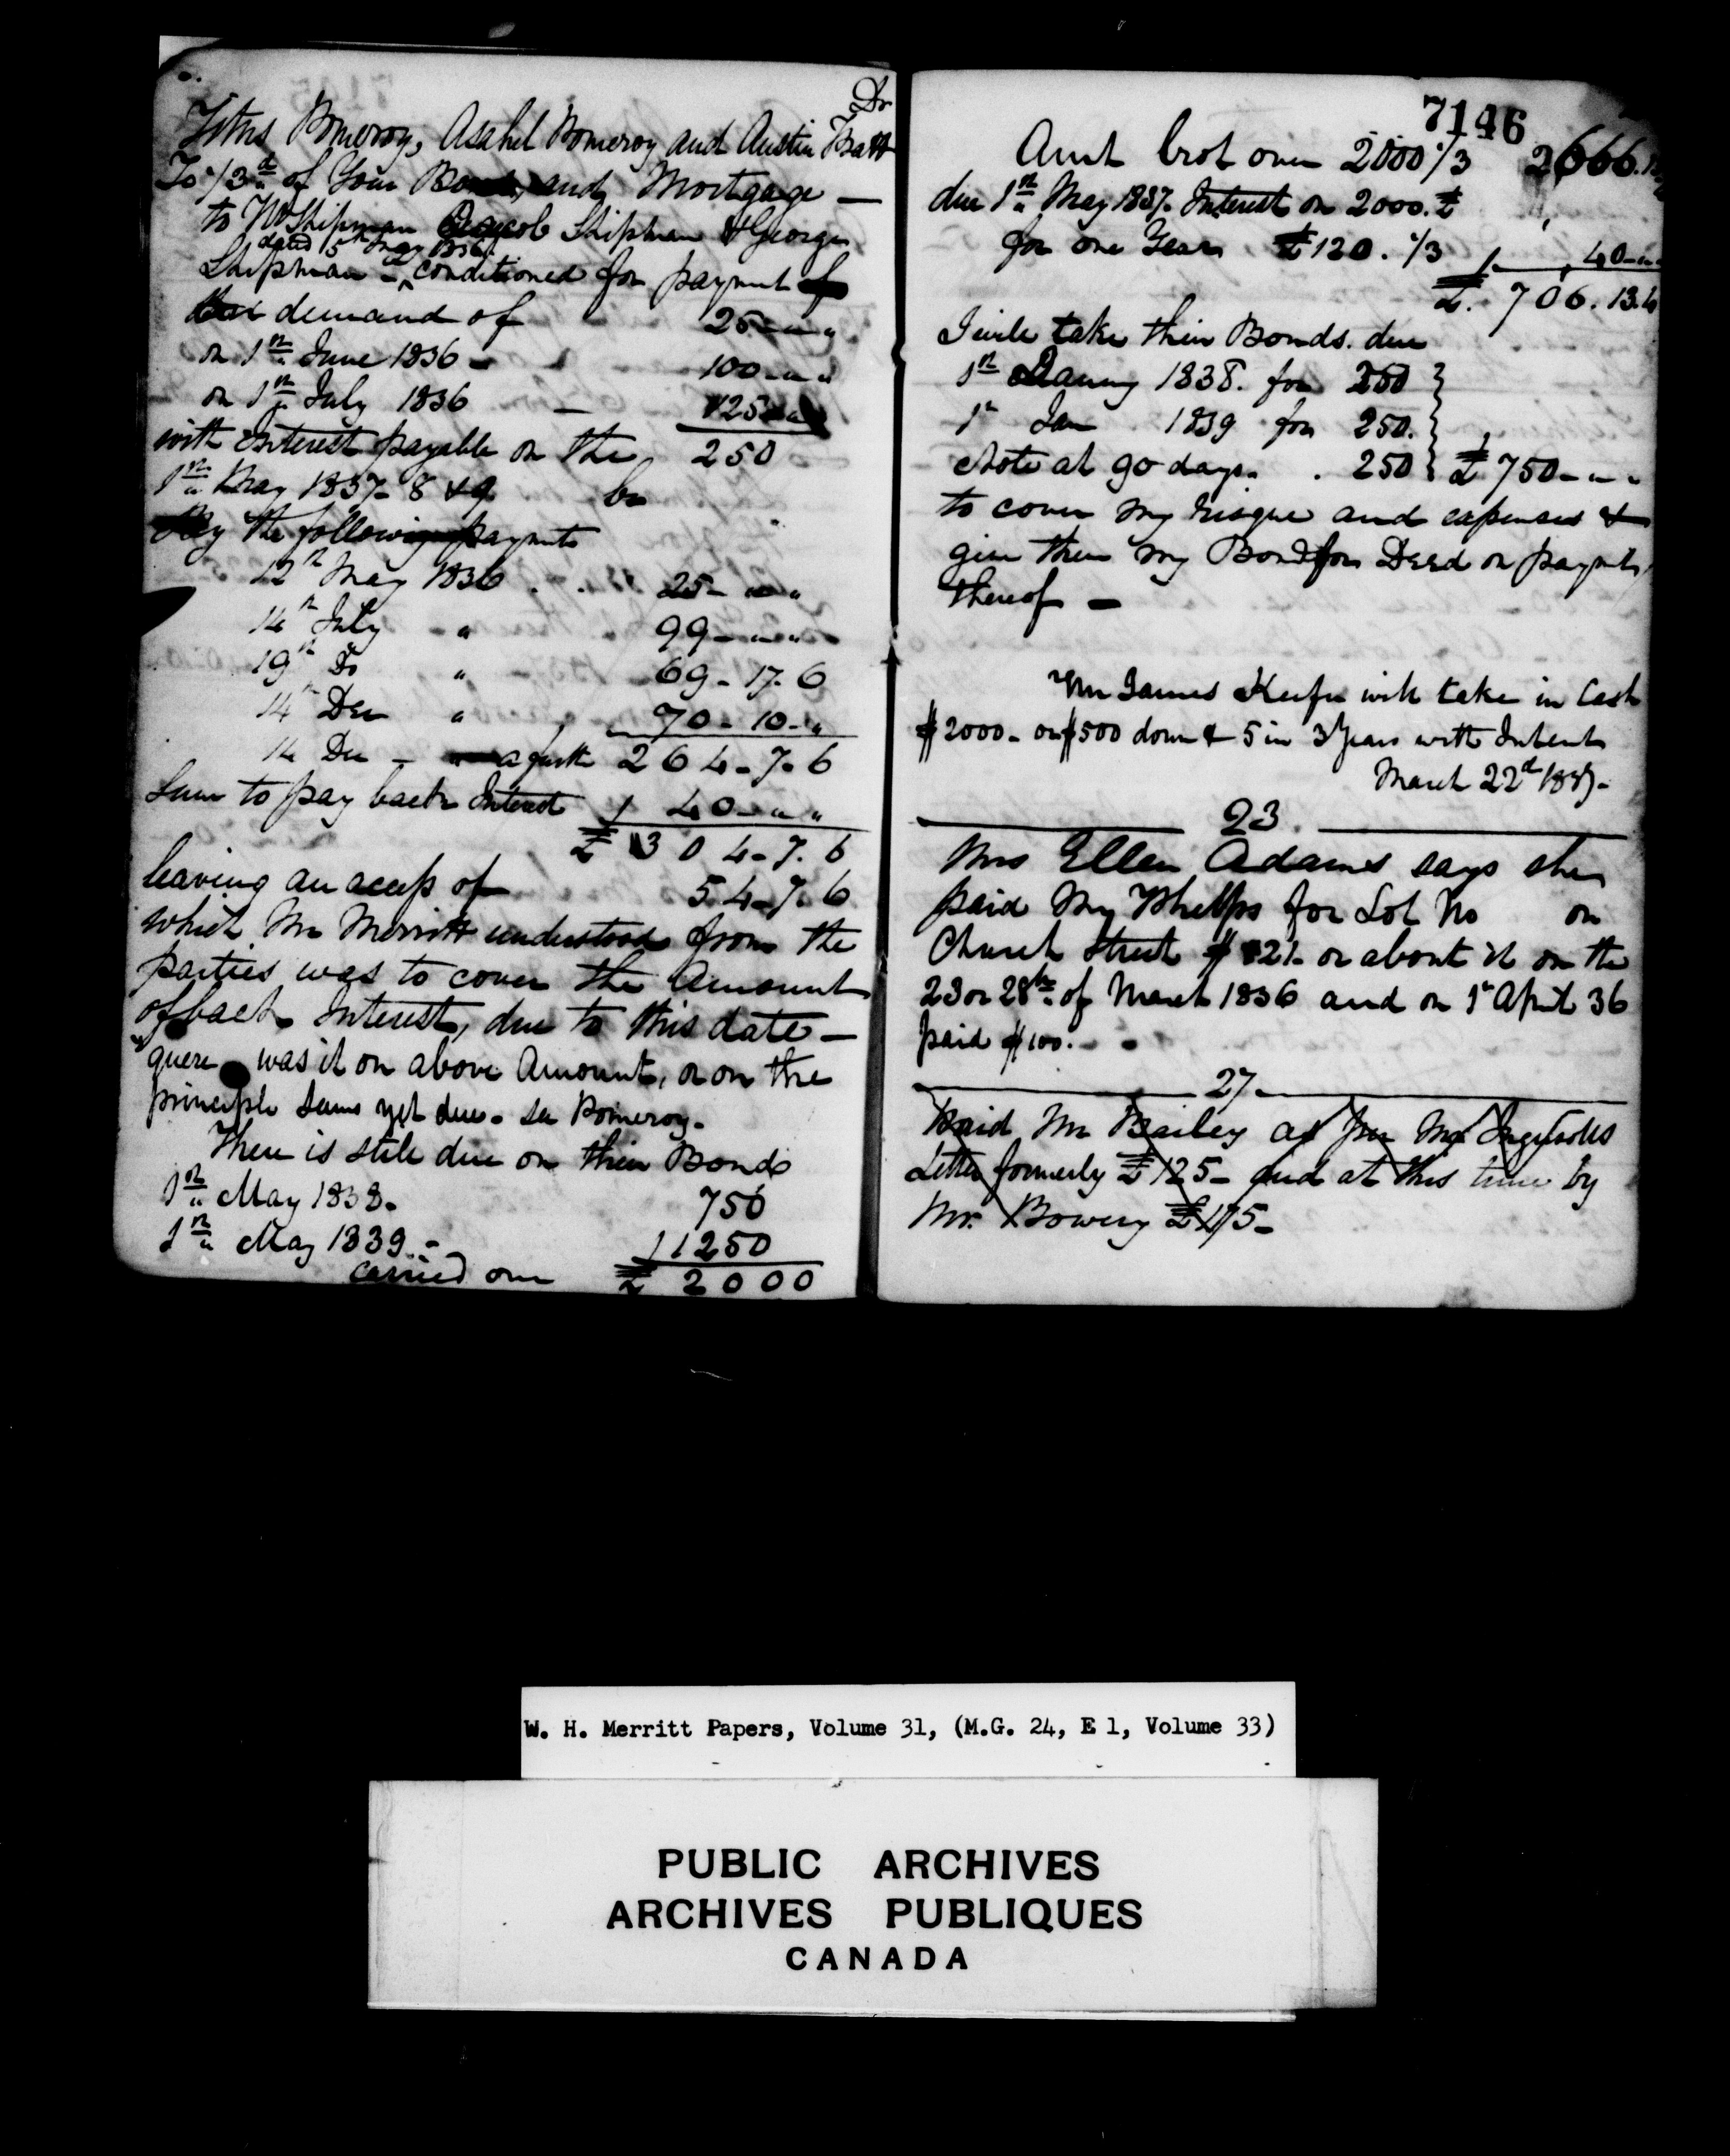 Dr
Titus Pomeroy, Asahel Pomeroy and Austin Bratt
To 1/3d of Your Bond, and Mortgage —
to Wm Shipman Jacob Shipman & George
dated 5th May 1836
Shipman - conditioned for payment of
demand of 25 - " "
on 1st June 1836 - 100 - " "
on 1st July 1836 — 125 - "
with Interest payable on the 250
1st May 1837- 8 & 9
By the following payments
12th May 1836 . . 25 - " "
14th July - " 99 - " "
19th Do " 69 - 17. 6
14th Dec " 70 - 10 - "
14 Dec - 264 - 7 - 6
Sum to pay back Interest 40 - " "
£ 304 - 7. 6
leaving an access of 54 - 7. 6
which Mr Merritt understood from the
parties was to cover the Amount
of back Interest, due to this date —
quere was it on above Amount, or on the
principle sum yet due - see Pomeroy -
There is still due on their Bonds
1st May 1838 - 750
1st May 1839 . - 1250
carried over £ 2000
7146
Amt brot over 2000 1/3 666.13
due 1st May 1837. Interest on 2000. £
for one Year £120. 1/3 40 - " "
£. 706. 13. 4
I will take their Bonds. due
1st January 1838. for 250
1st Jan 1839 for 250.
Note at 90 days. . 250 £ 750 - " "
to cover my risque and expenses &
give them my Bond for Deed on payment
thereof —
Mr James Keefer will take in Cash
$2000 - or $500 down & 5 in 3 Years with Interest
March 22d 1837 -
23.
Mrs Ellen Adams says she
paid Mr Phelps for Lot No on
Church Street $ 21 - or about it on the
23 or 28th of March 1836 and on 1st April 36
paid $100. -
27 -
Paid Mr Bailey as per Mr Ingersolls
Letter formerly £125 - and at this time by
Mr. Bowery £175 -
W. H. Merritt Papers, Volume 31, (M.G. 24, E 1, Volume 33)
PUBLIC ARCHIVES
ARCHIVES PUBLIQUES
CANADA